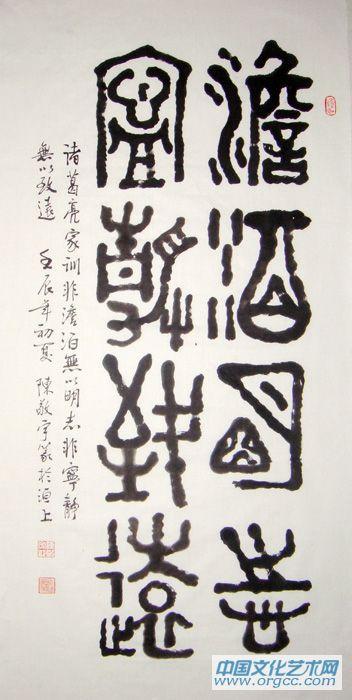 澹泊明志
寧靜致遠
诸葛亮家训非澹泊無以明志非寧靜
無以致遠 壬辰年初夏 陳敬宇篆於洹上
中国文化艺术网
www.orgcc.com